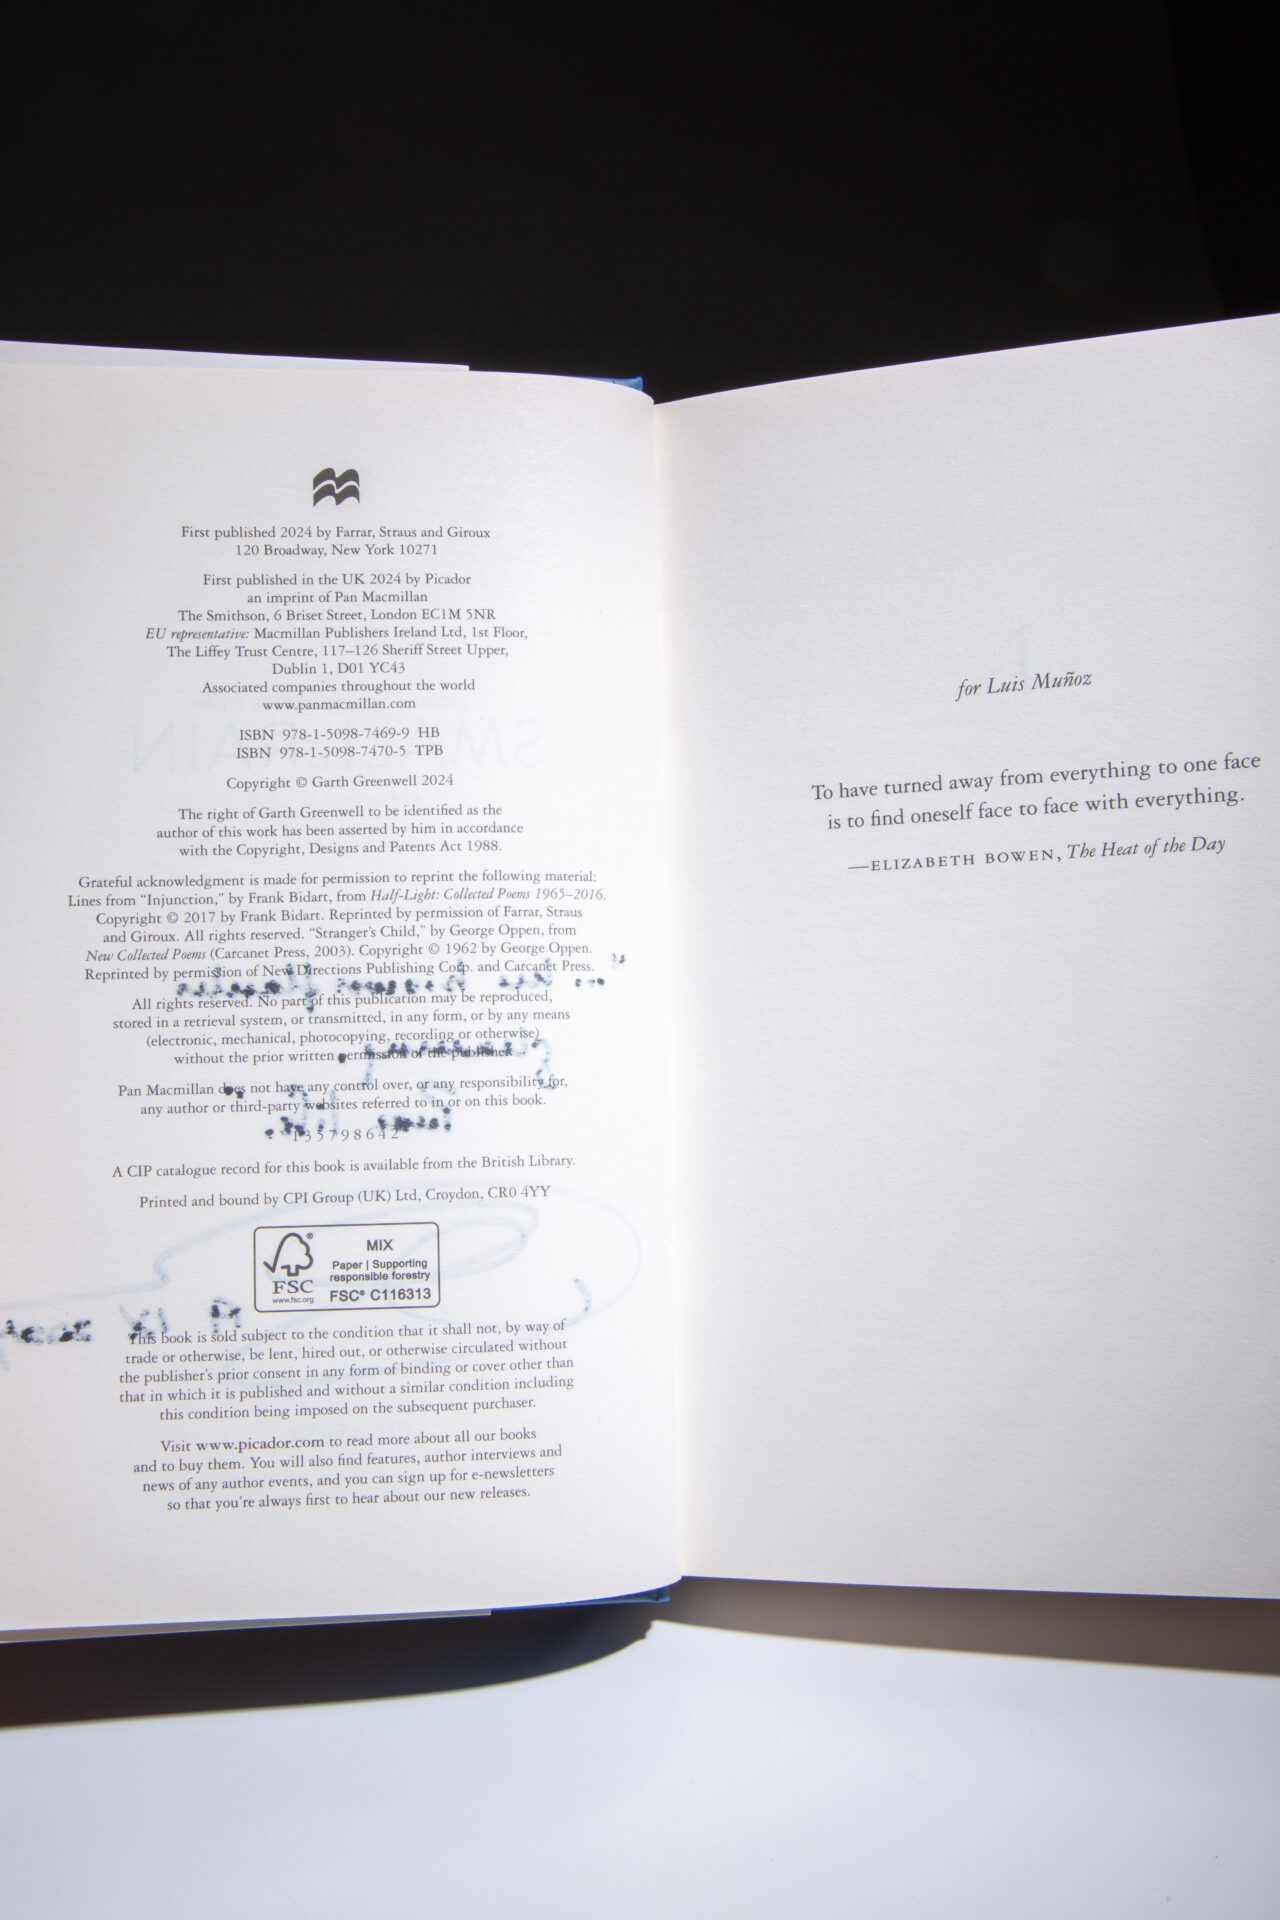 First published 2024 by Farrar, Straus and Giroux
120 Broadway, New York 10271
First published in the UK 2024 by Picador
an imprint of Pan Macmillan
The Smithson, 6 Briset Street, London EC1M 5NR
EU representative: Macmillan Publishers Ireland Ltd, 1st Floor,
The Liffey Trust Centre, 117–126 Sheriff Street Upper,
Dublin 1, D01 YC43
Associated companies throughout the world
www.panmacmillan.com
ISBN 978-1-5098-7469-9 HB
ISBN 978-1-5098-7470-5 TPB
Copyright © Garth Greenwell 2024
The right of Garth Greenwell to be identified as the
author of this work has been asserted by him in accordance
with the Copyright, Designs and Patents Act 1988.
Grateful acknowledgment is made for permission to reprint the following material:
Lines from “Injunction,” by Frank Bidart, from Half-Light: Collected Poems 1965–2016.
Copyright © 2017 by Frank Bidart. Reprinted by permission of Farrar, Straus
and Giroux. All rights reserved. “Stranger’s Child,” by George Oppen, from
New Collected Poems (Carcanet Press, 2003). Copyright © 1962 by George Oppen.
Reprinted by permission of New Directions Publishing Corp. and Carcanet Press.
All rights reserved. No part of this publication may be reproduced,
stored in a retrieval system, or transmitted, in any form, or by any means
(electronic, mechanical, photocopying, recording or otherwise)
without the prior written permission of the publisher.
Pan Macmillan does not have any control over, or any responsibility for,
any author or third-party websites referred to in or on this book.
1 3 5 7 9 8 6 4 2
A CIP catalogue record for this book is available from the British Library.
Printed and bound by CPI Group (UK) Ltd, Croydon, CR0 4YY
MIX
Paper | Supporting
responsible forestry
FSC® C116313
FSC
www.fsc.org
This book is sold subject to the condition that it shall not, by way of
trade or otherwise, be lent, hired out, or otherwise circulated without
the publisher’s prior consent in any form of binding or cover other than
that in which it is published and without a similar condition including
this condition being imposed on the subsequent purchaser.
Visit www.picador.com to read more about all our books
and to buy them. You will also find features, author interviews and
news of any author events, and you can sign up for e-newsletters
so that you’re always first to hear about our new releases.
for Luis Muñoz
To have turned away from everything to one face
is to find oneself face to face with everything.
—ELIZABETH BOWEN, The Heat of the Day